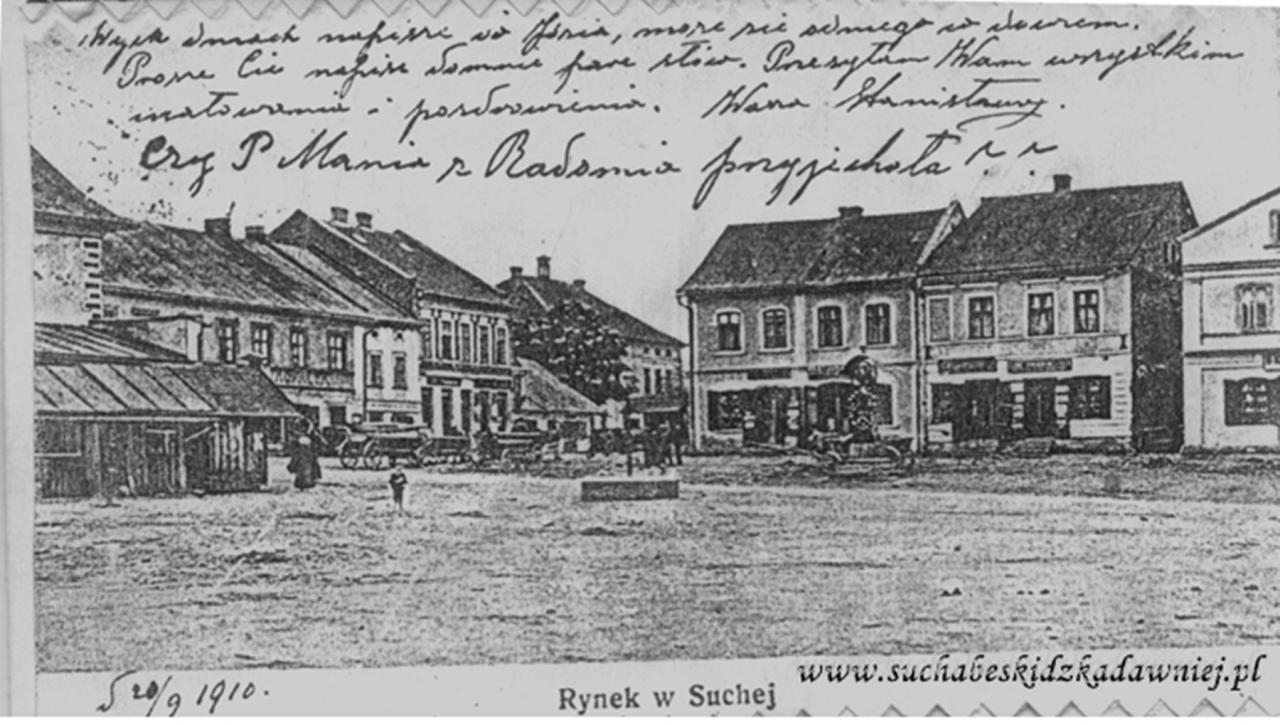 dniach napisze do Józia, może się odmego w
Prosze Cie napisz domnie pare słów. Przesyłam Wam wszystkim
i pozdrowienia. Wasz Stanisławy.
Czy P Mania z Radomia przyjechała ? ?
20/9 1910.
Rynek w Suchej
www.suchabeskidzkadawniej.pl